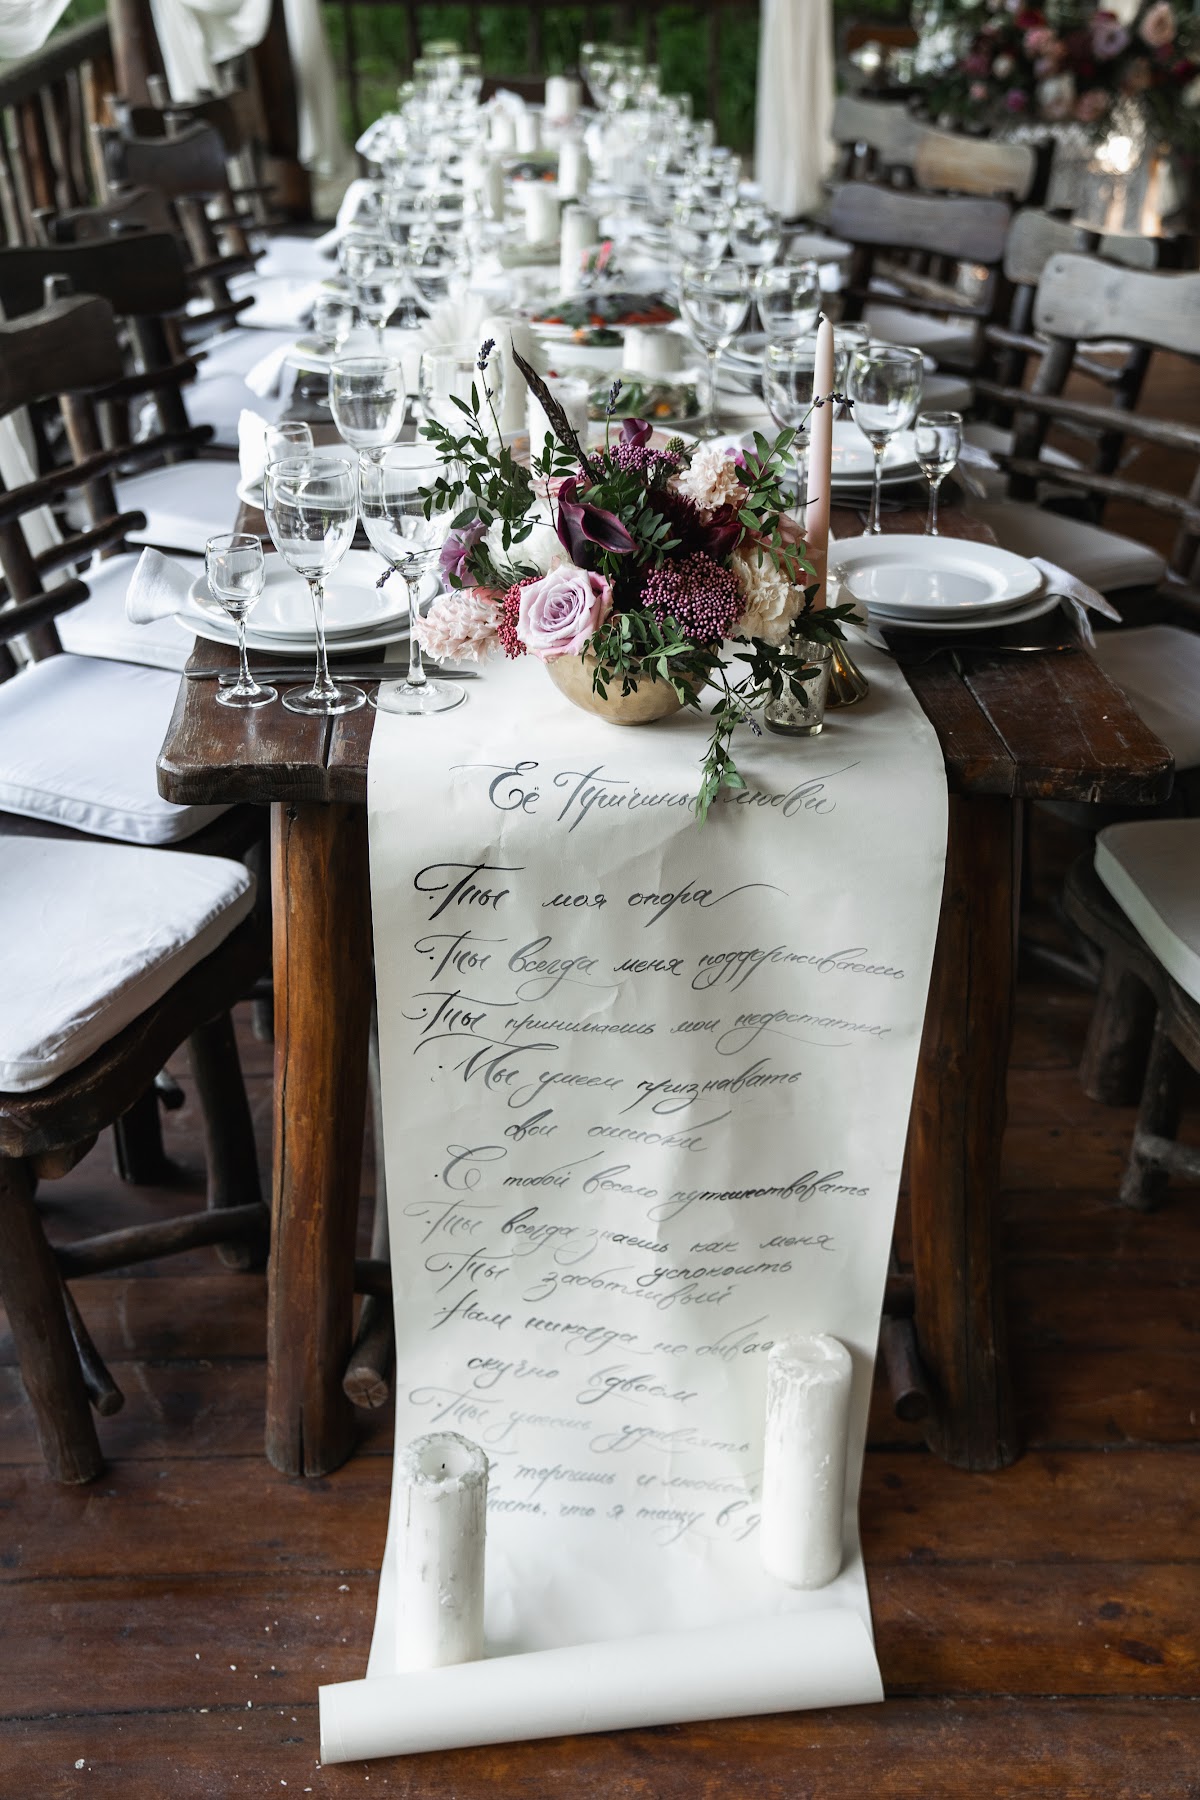 Её Причины любви
· Ты моя опора
· Ты всегда меня поддерживаешь
· Ты принимаешь мои недостатки
· Мы умеем признавать
свои ошибки
· С тобой весело путешествовать
· Ты всегда знаешь как меня
успокоить
· Ты заботливый
· Нам никогда не бывае
скучно вдвоём
· Ты умеешь удивлять
терпишь и
что я тащу в д